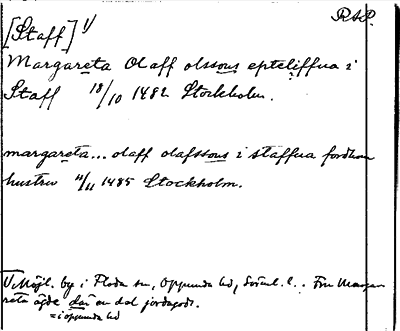 RAP.
[Staff] 1/
Margareta Olaff olssons epteliffua i
Staff 18/10 1482 Stockholm.
margareta... olaff olafssons i staffua fordom
hustru 11/11 1485 Stockholm.
1/ Möjl. by i Floda sn, Oppunda hd, Söderml. l.. Fru Marga-
reta ägde där en del jordagods.
= i oppunda hd